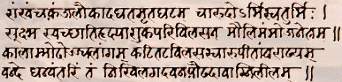 शंखंचक्रंजलौकादधतमृतघटम् चारुदोर्भिश्चतुर्भिः।
सुक्ष्म स्वच्छातिहृद्यांशुकपरिविलसन मौलिमंभोजनेत्रम ॥
कालाम्भोदोज्वलांगम कटितटविलसच्चारुपीतांबराढ्यम
वन्दे धन्वंतरिं तं निखिलगदवनप्रौढदावाग्निलीलम् ॥